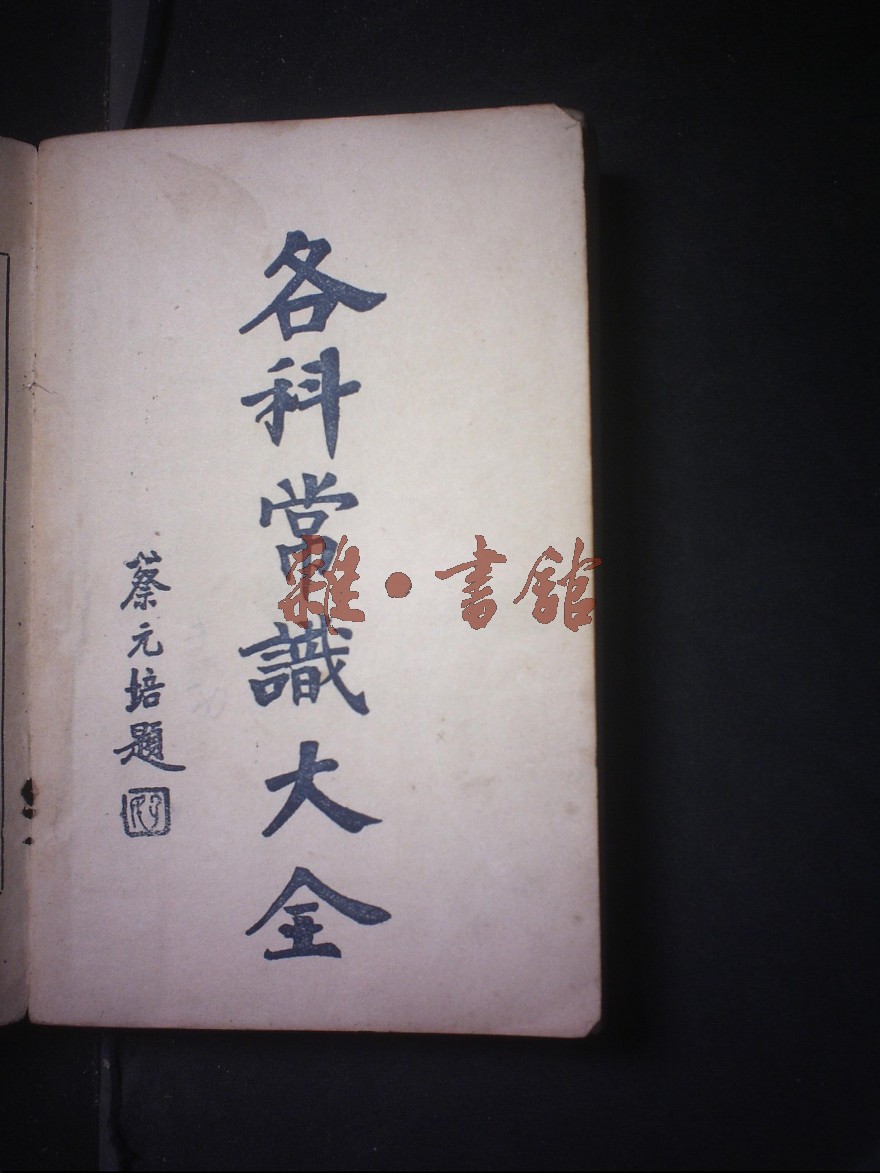 各科當識大全
蔡元培題
雜·書館